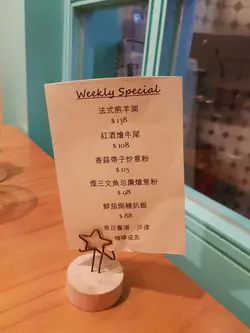 Weekly Special
法式煎羊架
$138
紅酒燴牛尾
$108
香蒜帶子炒意粉
$115
煙三文魚忌廉燴意粉
$98
鮮茄焗豬扒飯
$88
是日餐湯 沙律
咖啡或茶